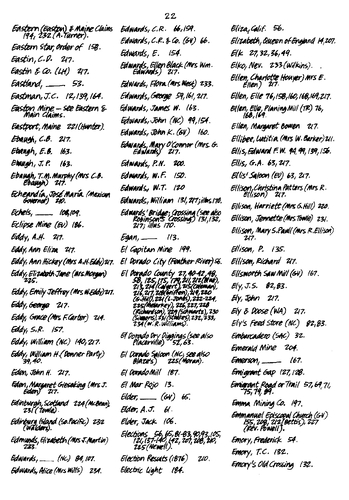 22
Eastern (Eastern) & Maine Claims
194, 232 (A. Turner).
Eastern Star, Order of 158.
Eastin, C.D. 217.
Eastin & Co. (LH) 217.
Eastland, 53.
Eastman, J.C. 12, 139, 164.
Easton Mine — see Eastern &
Main Claims.
Eastport, Maine 221 (Hunter).
Ebaugh, C.B. 217.
Ebaugh, E.B. 163.
Ebaugh, J.P. 163.
Ebaugh, T.M. Murphy (Mrs C.B.
Ebaugh) 217.
Echeandía, José María (Mexican
Governor) 210.
Echels, 108, 109.
Eclipse Mine (EV) 186.
Eddy, A.H. 217.
Eddy, Ann Eliza 217.
Eddy, Ann Hickey (Mrs A.H. Eddy) 217.
Eddy, Elizabeth Jane (Mrs. Morgan)
225.
Eddy, Emily Jeffrey (Mrs W. Eddy) 217.
Eddy, George 217.
Eddy, Grace (Mrs F. Carter) 214.
Eddy, S.R. 157.
Eddy, William (NC) 140, 217.
Eddy, William H. (Donner Party)
39, 40.
Eden, John H. 217.
Eden, Margaret Gieseking (Mrs J.
Eden) 217.
Edinburgh, Scotland 224 (McBean),
231 (Towle).
Edinburg Island (So. Pacific) 232
Edmunds, Elizabeth (Mrs J. Martin)
223.
Edwards, (NC) 84, 107.
Edwards, Alice (Mrs Mills) 224.
Edwards, C.R. 66, 154.
Edwards, C.R. & Co. (GV) 66.
Edwards, E. 154.
Edwards, Ellen Black (Mrs Wm.
Edwards) 217.
Edwards, Flora (Mrs West) 233.
Edwards, George 59, 161, 217.
Edwards, James W. 163.
Edwards, John (NC) 99, 154.
Edwards, John K. (GV) 160.
Edwards, Mary O'Connor (Mrs. G.
Edwards) 217.
Edwards, P.H. 200.
Edwards, W.F. 150.
Edwards, W.T. 120
Edwards, William 131, 217; illus 170.
Edwards' Bridge, Crossing (see also
Robinson's Crossing) 131, 132,
217; illus 170.
Egan, 113.
El Capitan Mine 199.
El Dorado City (Feather River) 56.
El Dorado Mill 187.
El Mar Rojo 13.
Elder, (GV) 65.
Elder, A.J. 61.
Elder, Jack 106.
Election Results (1876) 210.
Electric Light 184.
Eliza, Calif. 56.
Elizabeth, Queen of England 14, 207.
Elk 27, 32, 36, 49.
Elko, Nev. 233 (Wilkins).
Ellen, Charlotte Houyer (Mrs E.
Ellen) 217.
Ellen, Margaret Bowen 217.
Elliber, Latitia (Mrs W. Barker) 211.
Ellis, G.A. 63, 217.
Ellis' Saloon (EV) 63, 217.
Ellison, Christina Patters (Mrs R.
Ellison) 217.
Ellison, Harriett (Mrs G. Hill) 220.
Ellison, Jennette (Mrs Towle) 231.
Ellison, Mary S. Paull (Mrs R. Ellison)
217.
Ellison, P. 135.
Ellison, Richard 217.
Ellsworth Saw Mill (GV) 167.
Ely, J.S. 82, 83.
Ely, John 217.
Ely & Doose (WA) 217.
Ely's Feed Store (NC) 82, 83.
Embarcadero (SAC) 32.
Emerald Mine 204.
Emerson, 167.
Emigrant Gap 127, 128.
Emigrant Road or Trail 57, 69, 71,
75, 79, 89.
Emma Mining Co. 197.
Emmanuel Episcopal Church (GV)
Emory, Frederick 54.
Emory, T.C. 132.
Emory's Old Crossing 132.